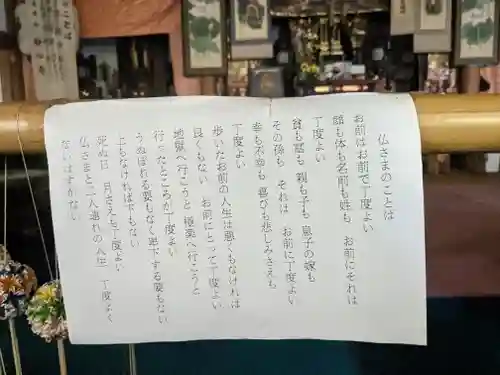 仏さまのことば
お前はお前で丁度よい
顔も体も名前も姓も　お前にそれは
丁度よい
貧も富も　親も子も　息子の嫁も
その孫も　それは　お前に丁度よい
幸も不幸も　喜びも悲しみさえも
丁度よい
歩いたお前の人生は悪くもなければ
良くもない　お前にとって丁度よい
地獄へ行こうと　極楽へ行こうと
行ったところが丁度よい
うぬぼれる要もなく卑下する要もない
上もなければ下もない
死ぬ日　月さえも丁度よい
仏さまと二人連れの人生　丁度よく
ないはずがない